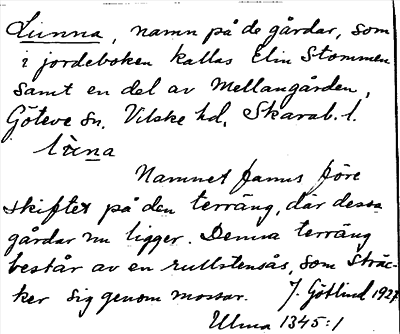 Lunna, namn på de gårdar, som
i jordeboken kallas Elin Stommen
samt en del av Mellangården,
Göteve sn. Vilske hd, Skarab. l.
Namnet fanns före
skiftet på den terräng, där dessa
gårdar nu ligger. Denna terräng
består av en rullstensås, som sträc-
ker sig genom mossar. J. Götlind 1927
Ulma 1345:1